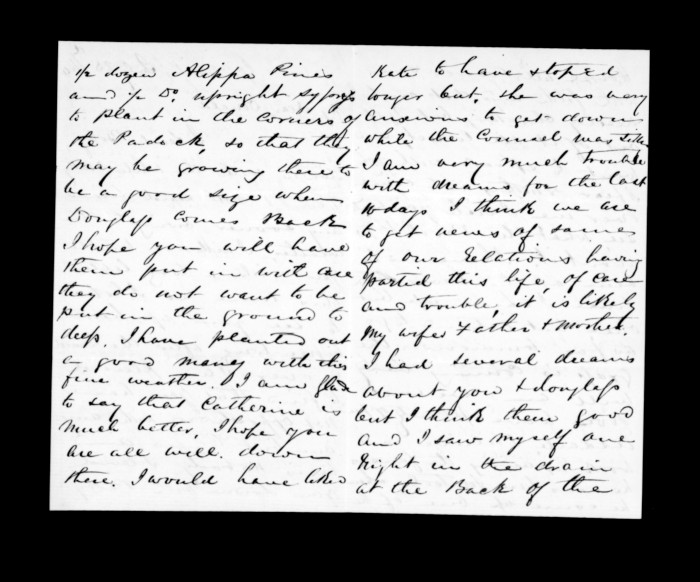 ½ dozen Aleppa Pines
and ½ Do. upright syprys
to plant in the corners of
the Padock, so that they
may be growing there to
be a good size when
Douglass comes Back
I hope you will have
them put in with care
they do not want to be
put in the ground to
deep. I have planted out
a good maney with this
fine weather. I am glad
to say that Catherine is
much better, I hope you
are all well down
there. I would have liked
Kate to have stoped
longer but, she was very
anxious to get down
while the Counsel was
I am very much trouble
with dreams for the last
10 days I think we are
to get news of some
of our Relations having
parted this life, of care
and trouble, it is likely
my wifes Father & Mother.
I had several dreams
about you & douglass
but I think them good
and I saw myself one
Night in the drain
at the Back of the